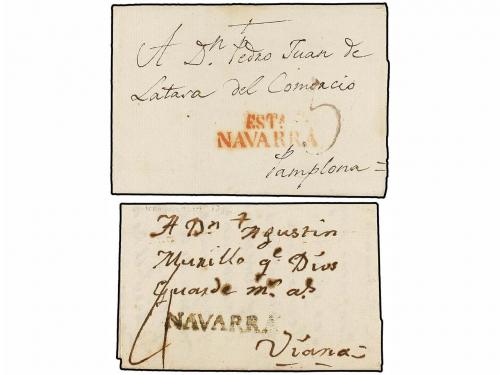 A Dn Pedro Juan de
Latasa del Comercio
ESTA
NAVARRA
5
Pamplona =
A Dn Agustin
Murillo qe Dios
Guarde ms as
NAVARRA
4
Viana =